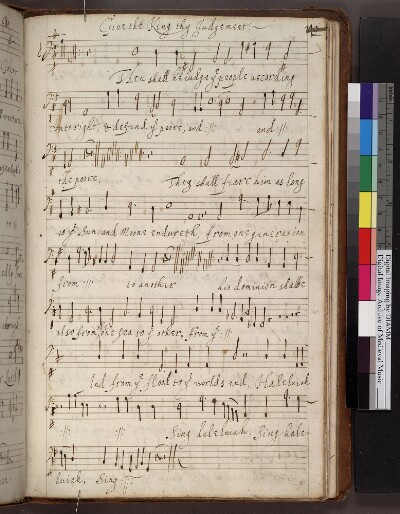 Give the King thy Judgements
Then shall he judge yͤ people according
unto right, & defend yͤ poore, and :||: and :||:
the poore. They shall feare him as long
as yͤ Sun and Moone endureth, from one generation
from :||: to another his dominion shalbe
also from the one sea to yͤ other, from yͤ :||:
And from yͤ flood to yͤ world's end, Haleluiah
:||: :||: Sing haleluiah, Sing hale-
luiah, Sing :||:
Digital Imaging by DIAMM
Digital Image Archive of Medieval Music